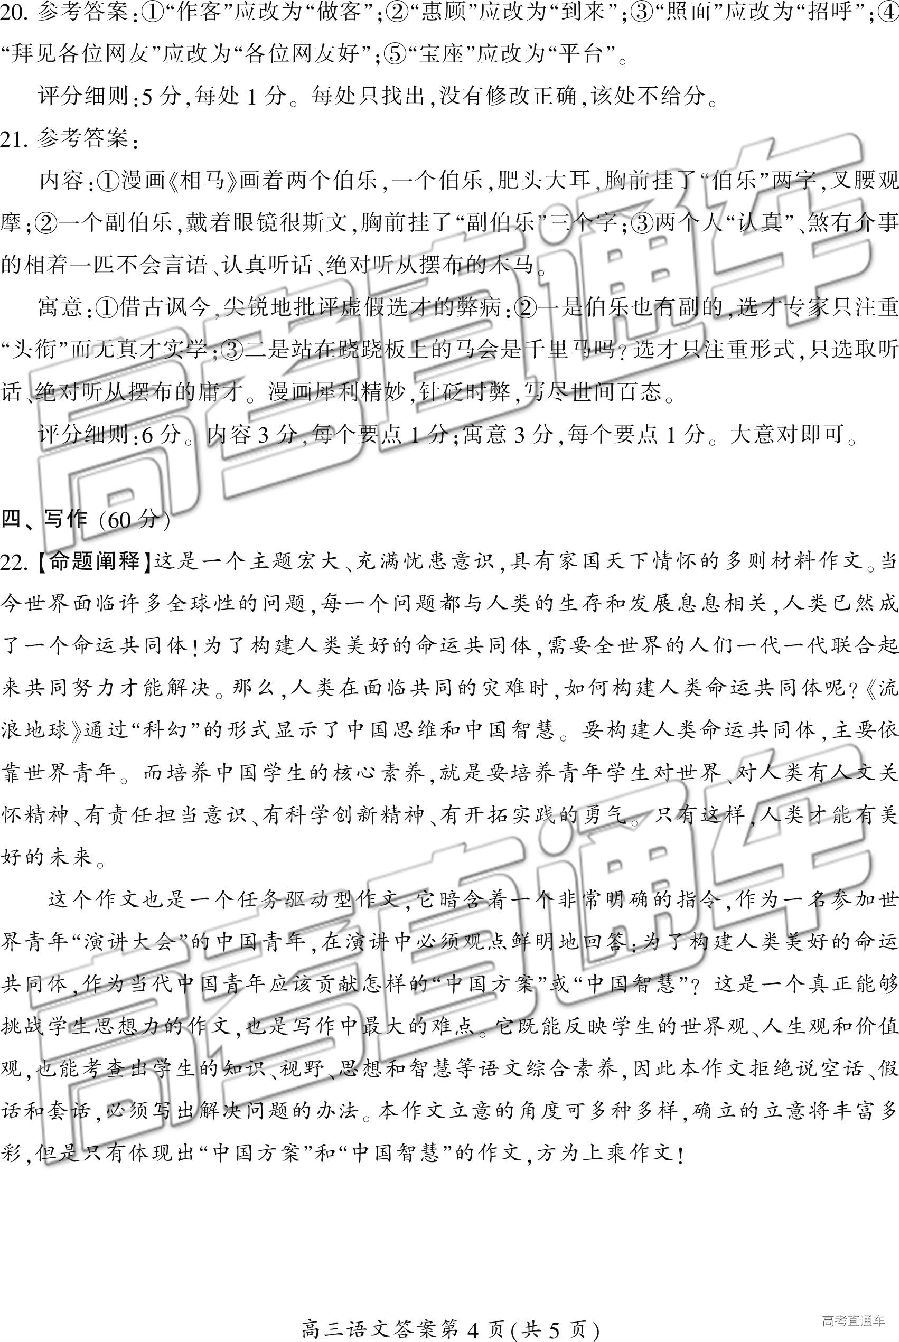 20. 参考答案:①“作客”应改为“做客”;②“惠顾”应改为“到来”;③“照面”应改为“招呼”;④
“拜见各位网友”应改为“各位网友好”;⑤“宝座”应改为“平台”。
评分细则:5分,每处1分。每处只找出,没有修改正确,该处不给分。
21. 参考答案:
内容:①漫画《相马》画着两个伯乐,一个伯乐,肥头大耳,胸前挂了“伯乐”两字,叉腰观
摩;②一个副伯乐,戴着眼镜很斯文,胸前挂了“副伯乐”三个字;③两个人“认真”、煞有介事
的相着一匹不会言语、认真听话、绝对听从摆布的木马。
寓意:①借古讽今,尖锐地批评虚假选才的弊病;②一是伯乐也有副的,选才专家只注重
“头衔”而无真才实学;③二是站在跷跷板上的马会是千里马吗?选才只注重形式,只选取听
话、绝对听从摆布的庸才。漫画犀利精妙,针砭时弊,写尽世间百态。
评分细则:6分。内容3分,每个要点1分;寓意3分,每个要点1分。大意对即可。
四、写作(60分)
22.【命题阐释】这是一个主题宏大、充满忧患意识,具有家国天下情怀的多则材料作文。当
今世界面临许多全球性的问题,每一个问题都与人类的生存和发展息息相关,人类已然成
了一个命运共同体!为了构建人类美好的命运共同体,需要全世界的人们一代一代联合起
来共同努力才能解决。那么,人类在面临共同的灾难时,如何构建人类命运共同体呢?《流
浪地球》通过“科幻”的形式显示了中国思维和中国智慧。要构建人类命运共同体,主要依
靠世界青年。而培养中国学生的核心素养,就是要培养青年学生对世界、对人类有人文关
怀精神、有责任担当意识、有科学创新精神、有开拓实践的勇气。只有这样,人类才能有美
好的未来。
这个作文也是一个任务驱动型作文,它暗含着一个非常明确的指令,作为一名参加世
界青年“演讲大会”的中国青年,在演讲中必须观点鲜明地回答:为了构建人类美好的命运
共同体,作为当代中国青年应该贡献怎样的“中国方案”或“中国智慧”?这是一个真正能够
挑战学生思想力的作文,也是写作中最大的难点。它既能反映学生的世界观、人生观和价值
观,也能考查出学生的知识、视野、思想和智慧等语文综合素养,因此本作文拒绝说空话、假
话和套话,必须写出解决问题的办法。本作文立意的角度可多种多样,确立的立意将丰富多
彩,但是只有体现出“中国方案”和“中国智慧”的作文,方为上乘作文!
高三语文答案第4页(共5页)
高考直通车
高考直通车
高考直通车